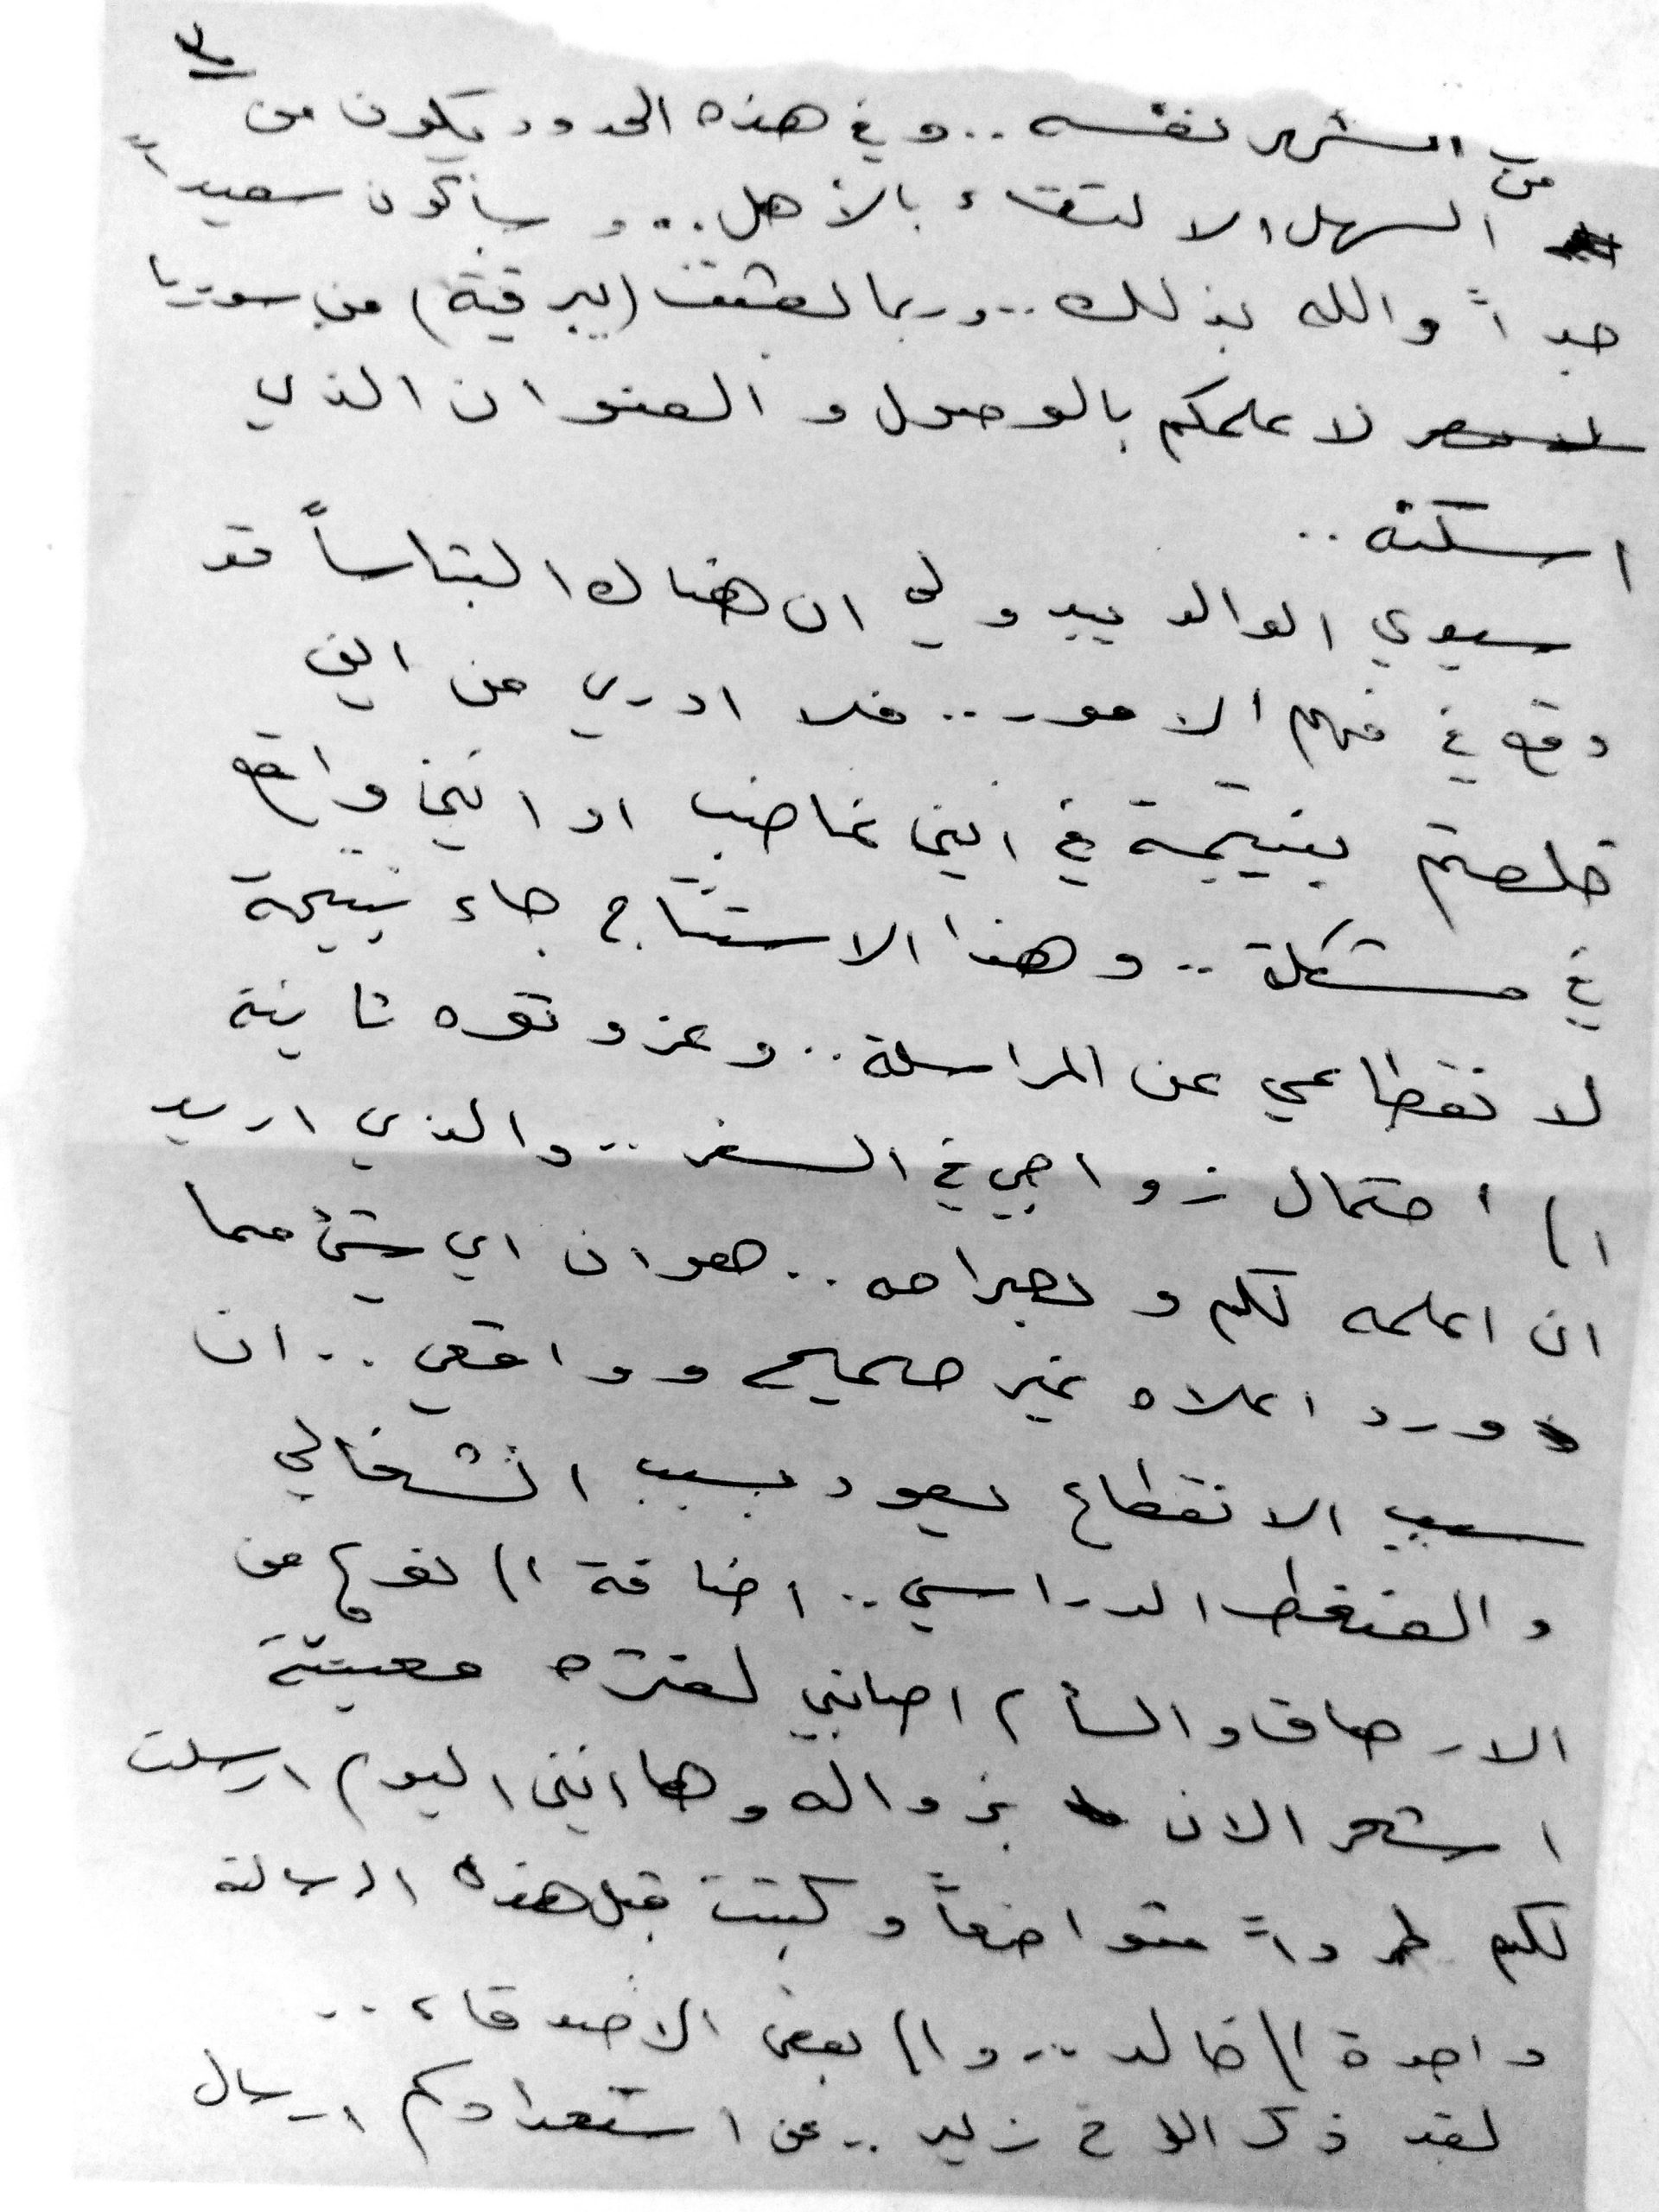 ٣
من الشهر نفسه .. وفي هذه الحدود يكون من
السهل الالتقاء بالأهل... وسأكون سعيداً
جداً والله بذلك .. وربما لعثت (ببرقية) من سوريا
لاعلمكم بالوصول والعنوان الذي
اسكنه ..
سيدي الوالد يبدو لي ان هناك التباساً قد
وقع في فهم الامور .. فلا ادري من اين
خلصتم بنتيجة في انني غاضب او انني واقع
في مشكلة .. وهذا الاستنتاج جاء نتيجة
لانقطاعي عن المراسلة .. وعزوتموه ثانية
الى احتمال زواجي في السفر .. والذي اريد
ان اعلمه لكم وبصراحه .. هو ان اي شيء مما
ورد اعلاه غير صحيح وواقعي .. ان
سبب الانقطاع يعود بسبب انشغالي
والضغط الدراسي .. اضافة الى نوع من
الارهاق والسأم اصابني لفتره معينة
اشعر الان بزواله وها انني اليوم ارسلت
لكم طرداً متواضعاً وكتبت قبل هذه الرسالة
واحدة الى خالد ... والى بعض الاصدقاء ..
لقد ذكر الاخ زيد .. عن استعدادكم ارسال